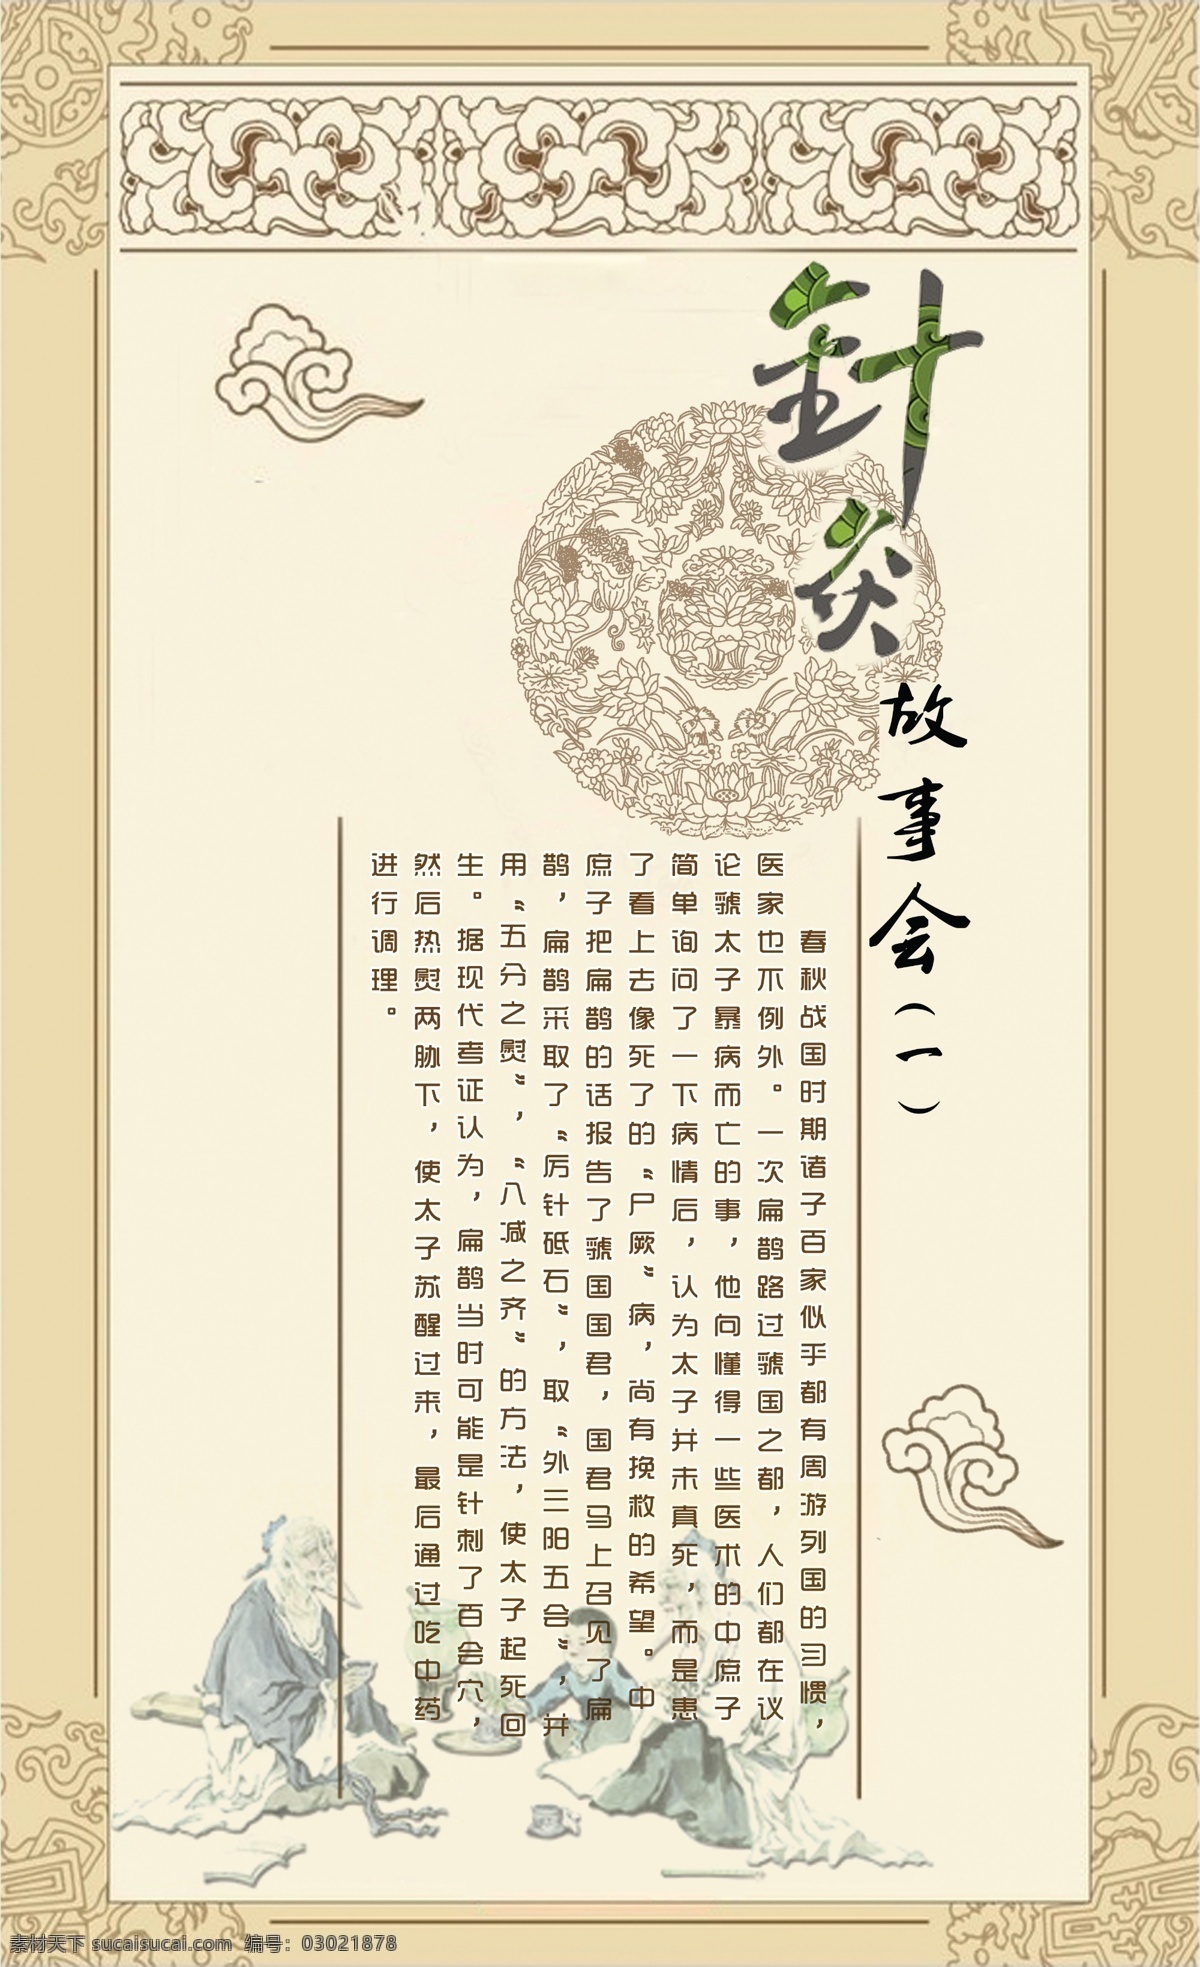 針灸
故事会（一）
春秋战国时期诸子百家似乎都有周游列国的习惯，
医家也不例外。一次扁鹊路过虢国之都，人们都在议
论虢太子暴病而亡的事，他向懂得一些医术的中庶子
简单询问了一下病情后，认为太子并未真死，而是患
了看上去像死了的“尸厥”病，尚有挽救的希望。中
庶子把扁鹊的话报告了虢国国君，国君马上召见了扁
鹊，扁鹊采取了“厉针砥石”，取“外三阳五会”，并
用“五分之熨”，“八减之齐”的方法，使太子起死回
生。据现代考证认为，扁鹊当时可能是针刺了百会穴，
然后热熨两胁下，使太子苏醒过来，最后通过吃中药
进行调理。
素材天下 sucaisucai.com 编号：03021878